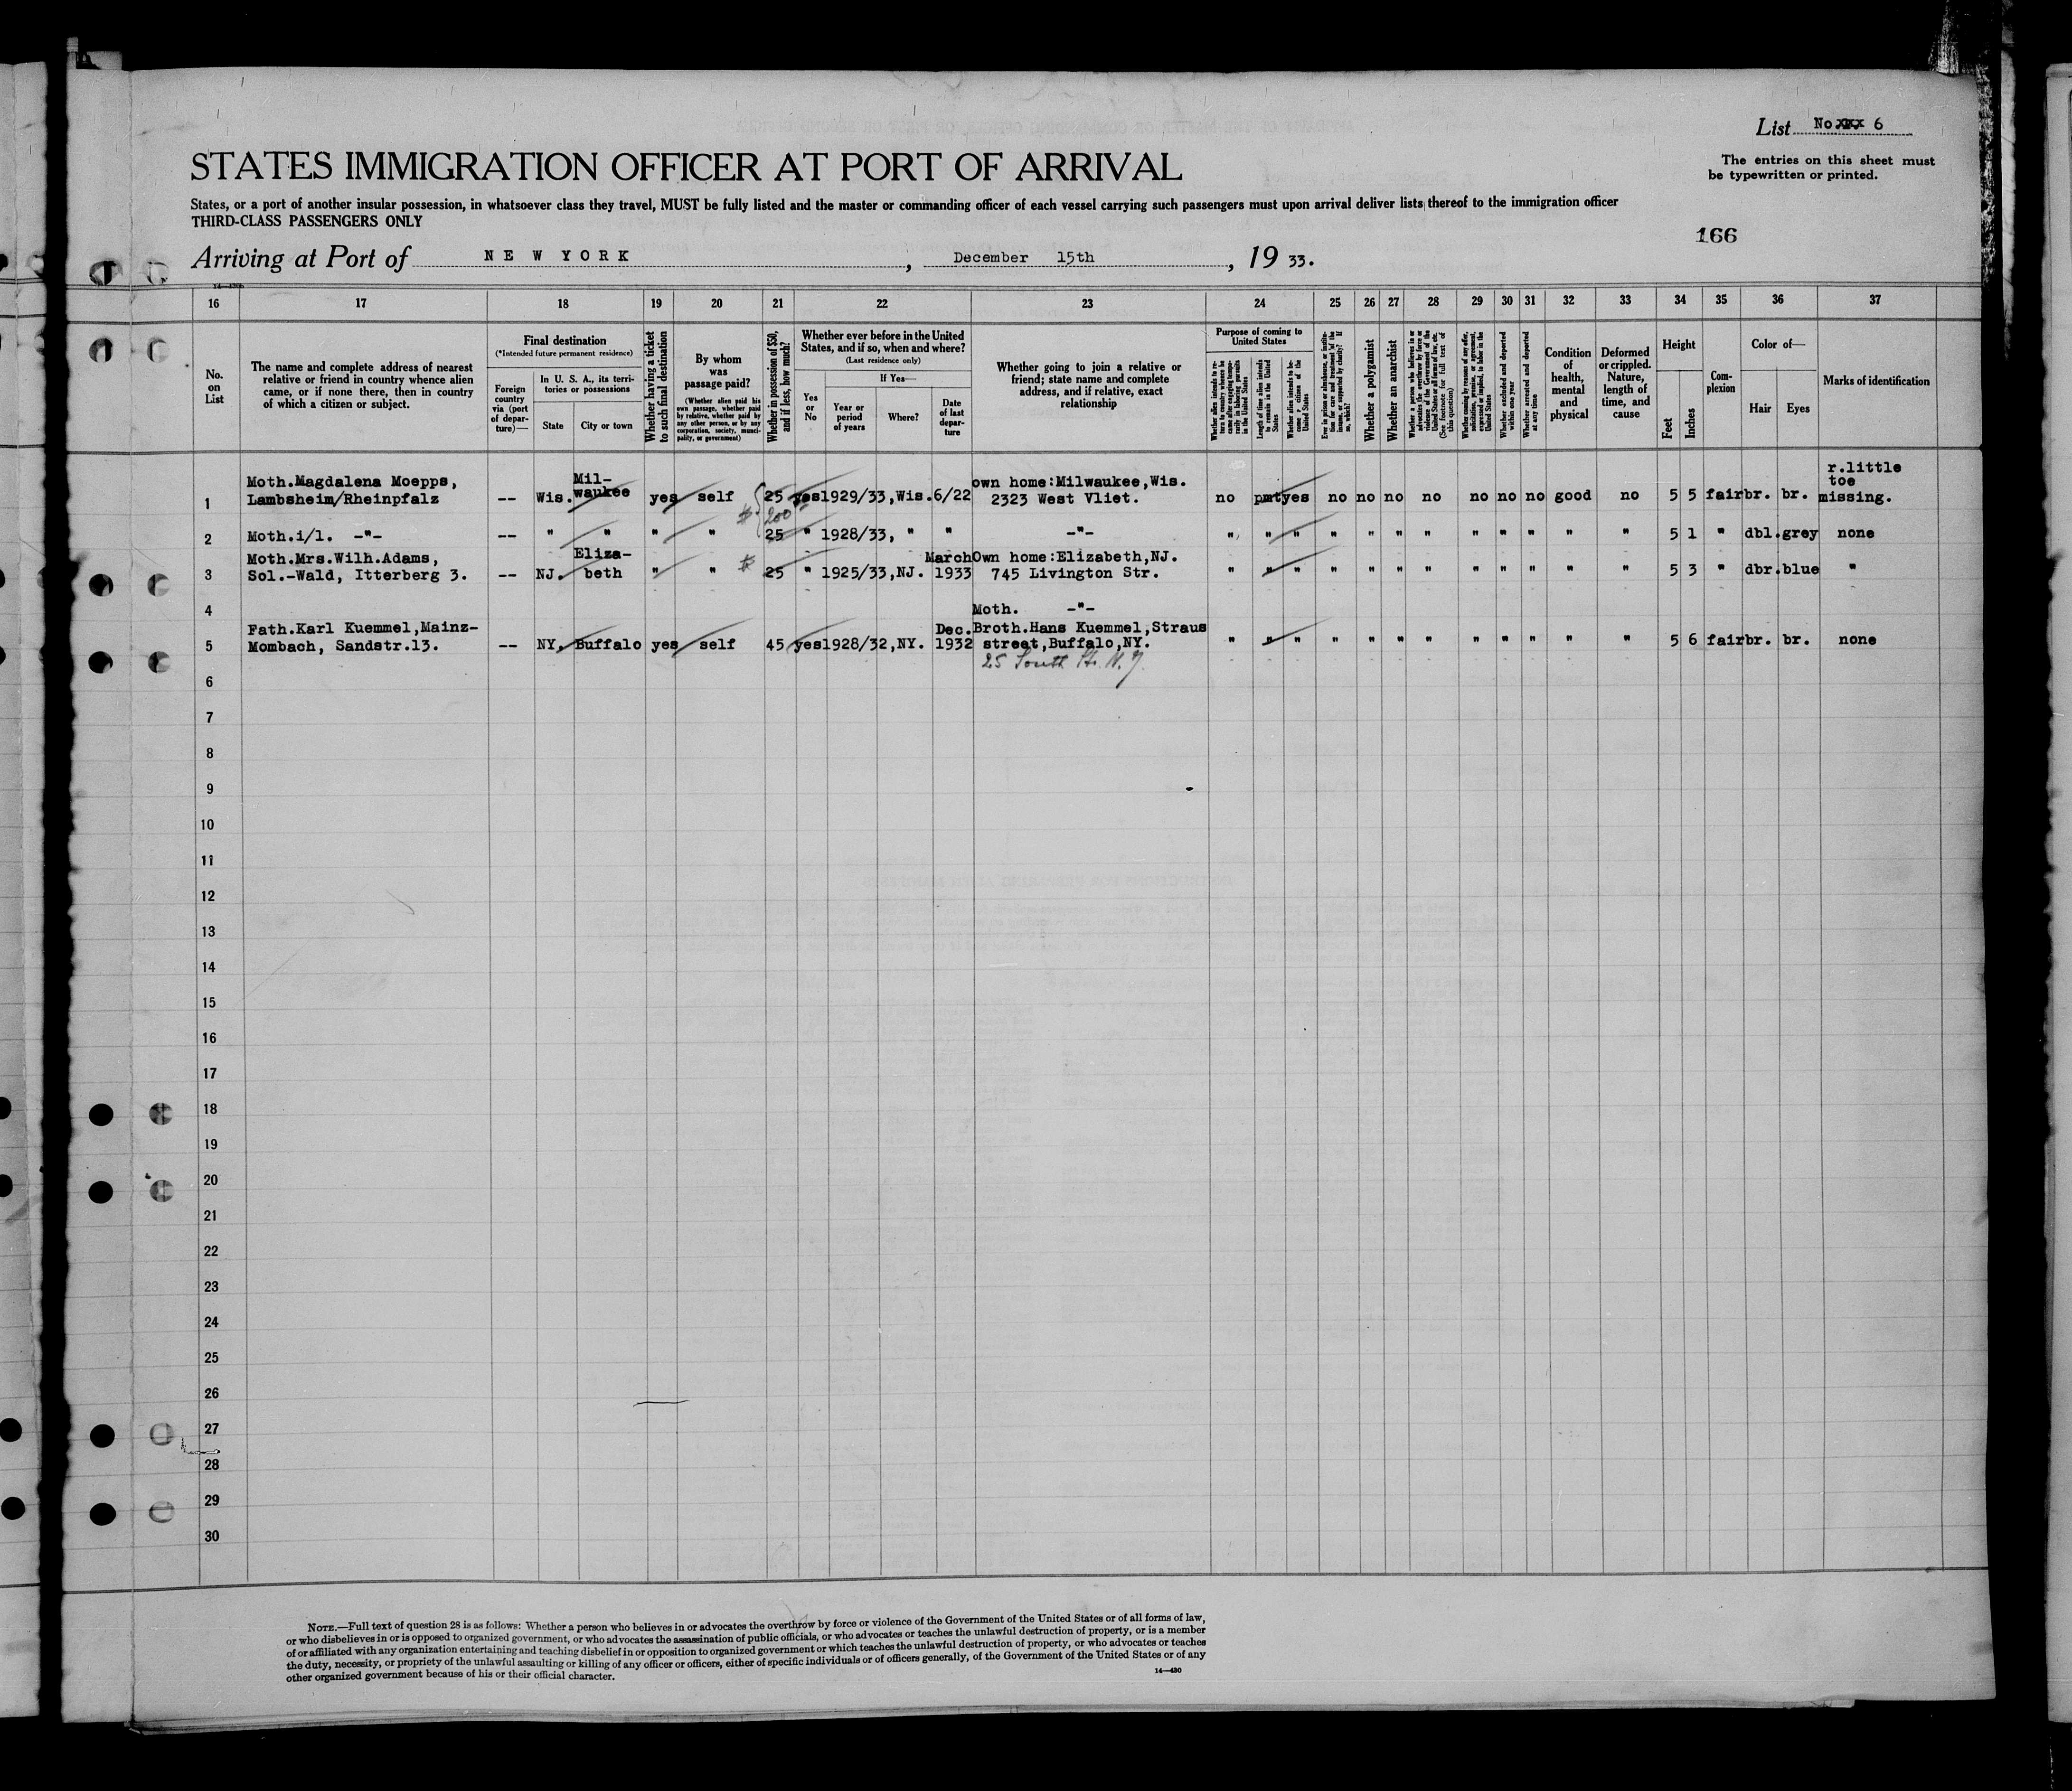 List No. xxx 6
STATES IMMIGRATION OFFICER AT PORT OF ARRIVAL
The entries on this sheet must
be typewritten or printed.
States, or a port of another insular possession, in whatsoever class they travel, MUST be fully listed and the master or commanding officer of each vessel carrying such passengers must upon arrival deliver lists thereof to the immigration officer
THIRD-CLASS PASSENGERS ONLY
166
Arriving at Port of NEW YORK, December 15th, 19 33.
16 17 18 19 20 21 22 23 24 25 26 27 28 29 30 31 32 33 34 35 36 37
No. on List
The name and complete address of nearest
relative or friend in country whence alien
came, or if none there, then in country
of which a citizen or subject.
Final destination
(*Intended future permanent residence)
Foreign country via (port of departure)—
In U. S. A., its territories or possessions
State
City or town
Whether having a ticket to such final destination
By whom was passage paid?
(Whether alien paid his own passage, whether paid by relative, whether paid by any other person, or by any corporation, society, municipality, or government)
Whether in possession of $50, and if less, how much?
Whether ever before in the United
States, and if so, when and where?
(Last residence only)
Yes or No
If Yes—
Year or period of years
Where?
Date of last departure
Whether going to join a relative or
friend; state name and complete
address, and if relative, exact
relationship
Purpose of coming to United States
Length of time alien intends to remain in the United States
Whether alien intends to become a citizen of the United States
Whether a polygamist
Whether an anarchist
Whether excluded and deported within one year
Whether arrested and deported at any time
Condition of health, mental and physical
Deformed or crippled. Nature, length of time, and cause
Height
Feet
Inches
Complexion
Color of—
Hair
Eyes
Marks of identification
1 Moth.Magdalena Moepps,
Lambsheim/Rheinpfalz -- Wis. Mil-
waukee yes self 25 yes 1929/33,Wis. 6/22 own home:Milwaukee,Wis.
2323 West Vliet. no pmt yes no no no no no no no good no 5 5 fair br. br. r.little
toe
missing.
$ 200
2 Moth.i/l. -"- -- " " " " 25 " 1928/33, " " -"- " " " " " " " " " " " " 5 1 " dbl. grey none
3 Moth.Mrs.Wilh.Adams,
Sol.-Wald, Itterberg 3. -- NJ. Eliza-
beth " " $ 25 " 1925/33,NJ. March
1933 Own home:Elizabeth,NJ.
745 Livington Str. " " " " " " " " " " " " 5 3 " dbr. blue "
4 Moth. -"-
5 Fath.Karl Kuemmel,Mainz-
Mombach, Sandstr.13. -- NY. Buffalo yes self 45 yes 1928/32,NY. Dec.
1932 Broth.Hans Kuemmel,Straus
street,Buffalo,NY. " " " " " " " " " " " " 5 6 fair br. br. none
25 South St. N.Y.
6
7
8
9
10
11
12
13
14
15
16
17
18
19
20
21
22
23
24
25
26
27
28
29
30
NOTE.—Full text of question 28 is as follows: Whether a person who believes in or advocates the overthrow by force or violence of the Government of the United States or of all forms of law,
or who disbelieves in or is opposed to organized government, or who advocates the assassination of public officials, or who advocates or teaches the unlawful destruction of property, or is a member
of or affiliated with any organization entertaining and teaching disbelief in or opposition to organized government or which teaches the unlawful destruction of property, or who advocates or teaches
the duty, necessity, or propriety of the unlawful assaulting or killing of any officer or officers, either of specific individuals or of officers generally, of the Government of the United States or of any
other organized government because of his or their official character.
14—430